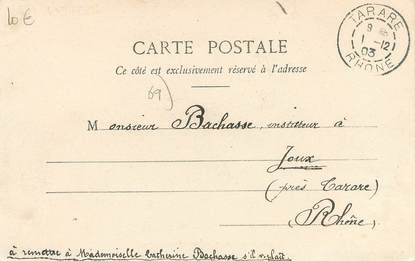 10€
TARARE
9 M
1 -12
03
RHONE
CARTE POSTALE
Ce côté est exclusivement réservé à l'adresse
69)
Monsieur Bachasse, instituteur à
Joux
(près Tarare)
(Rhône)
à remettre à Mademoiselle Catherine Bachasse s'il v. plaît.